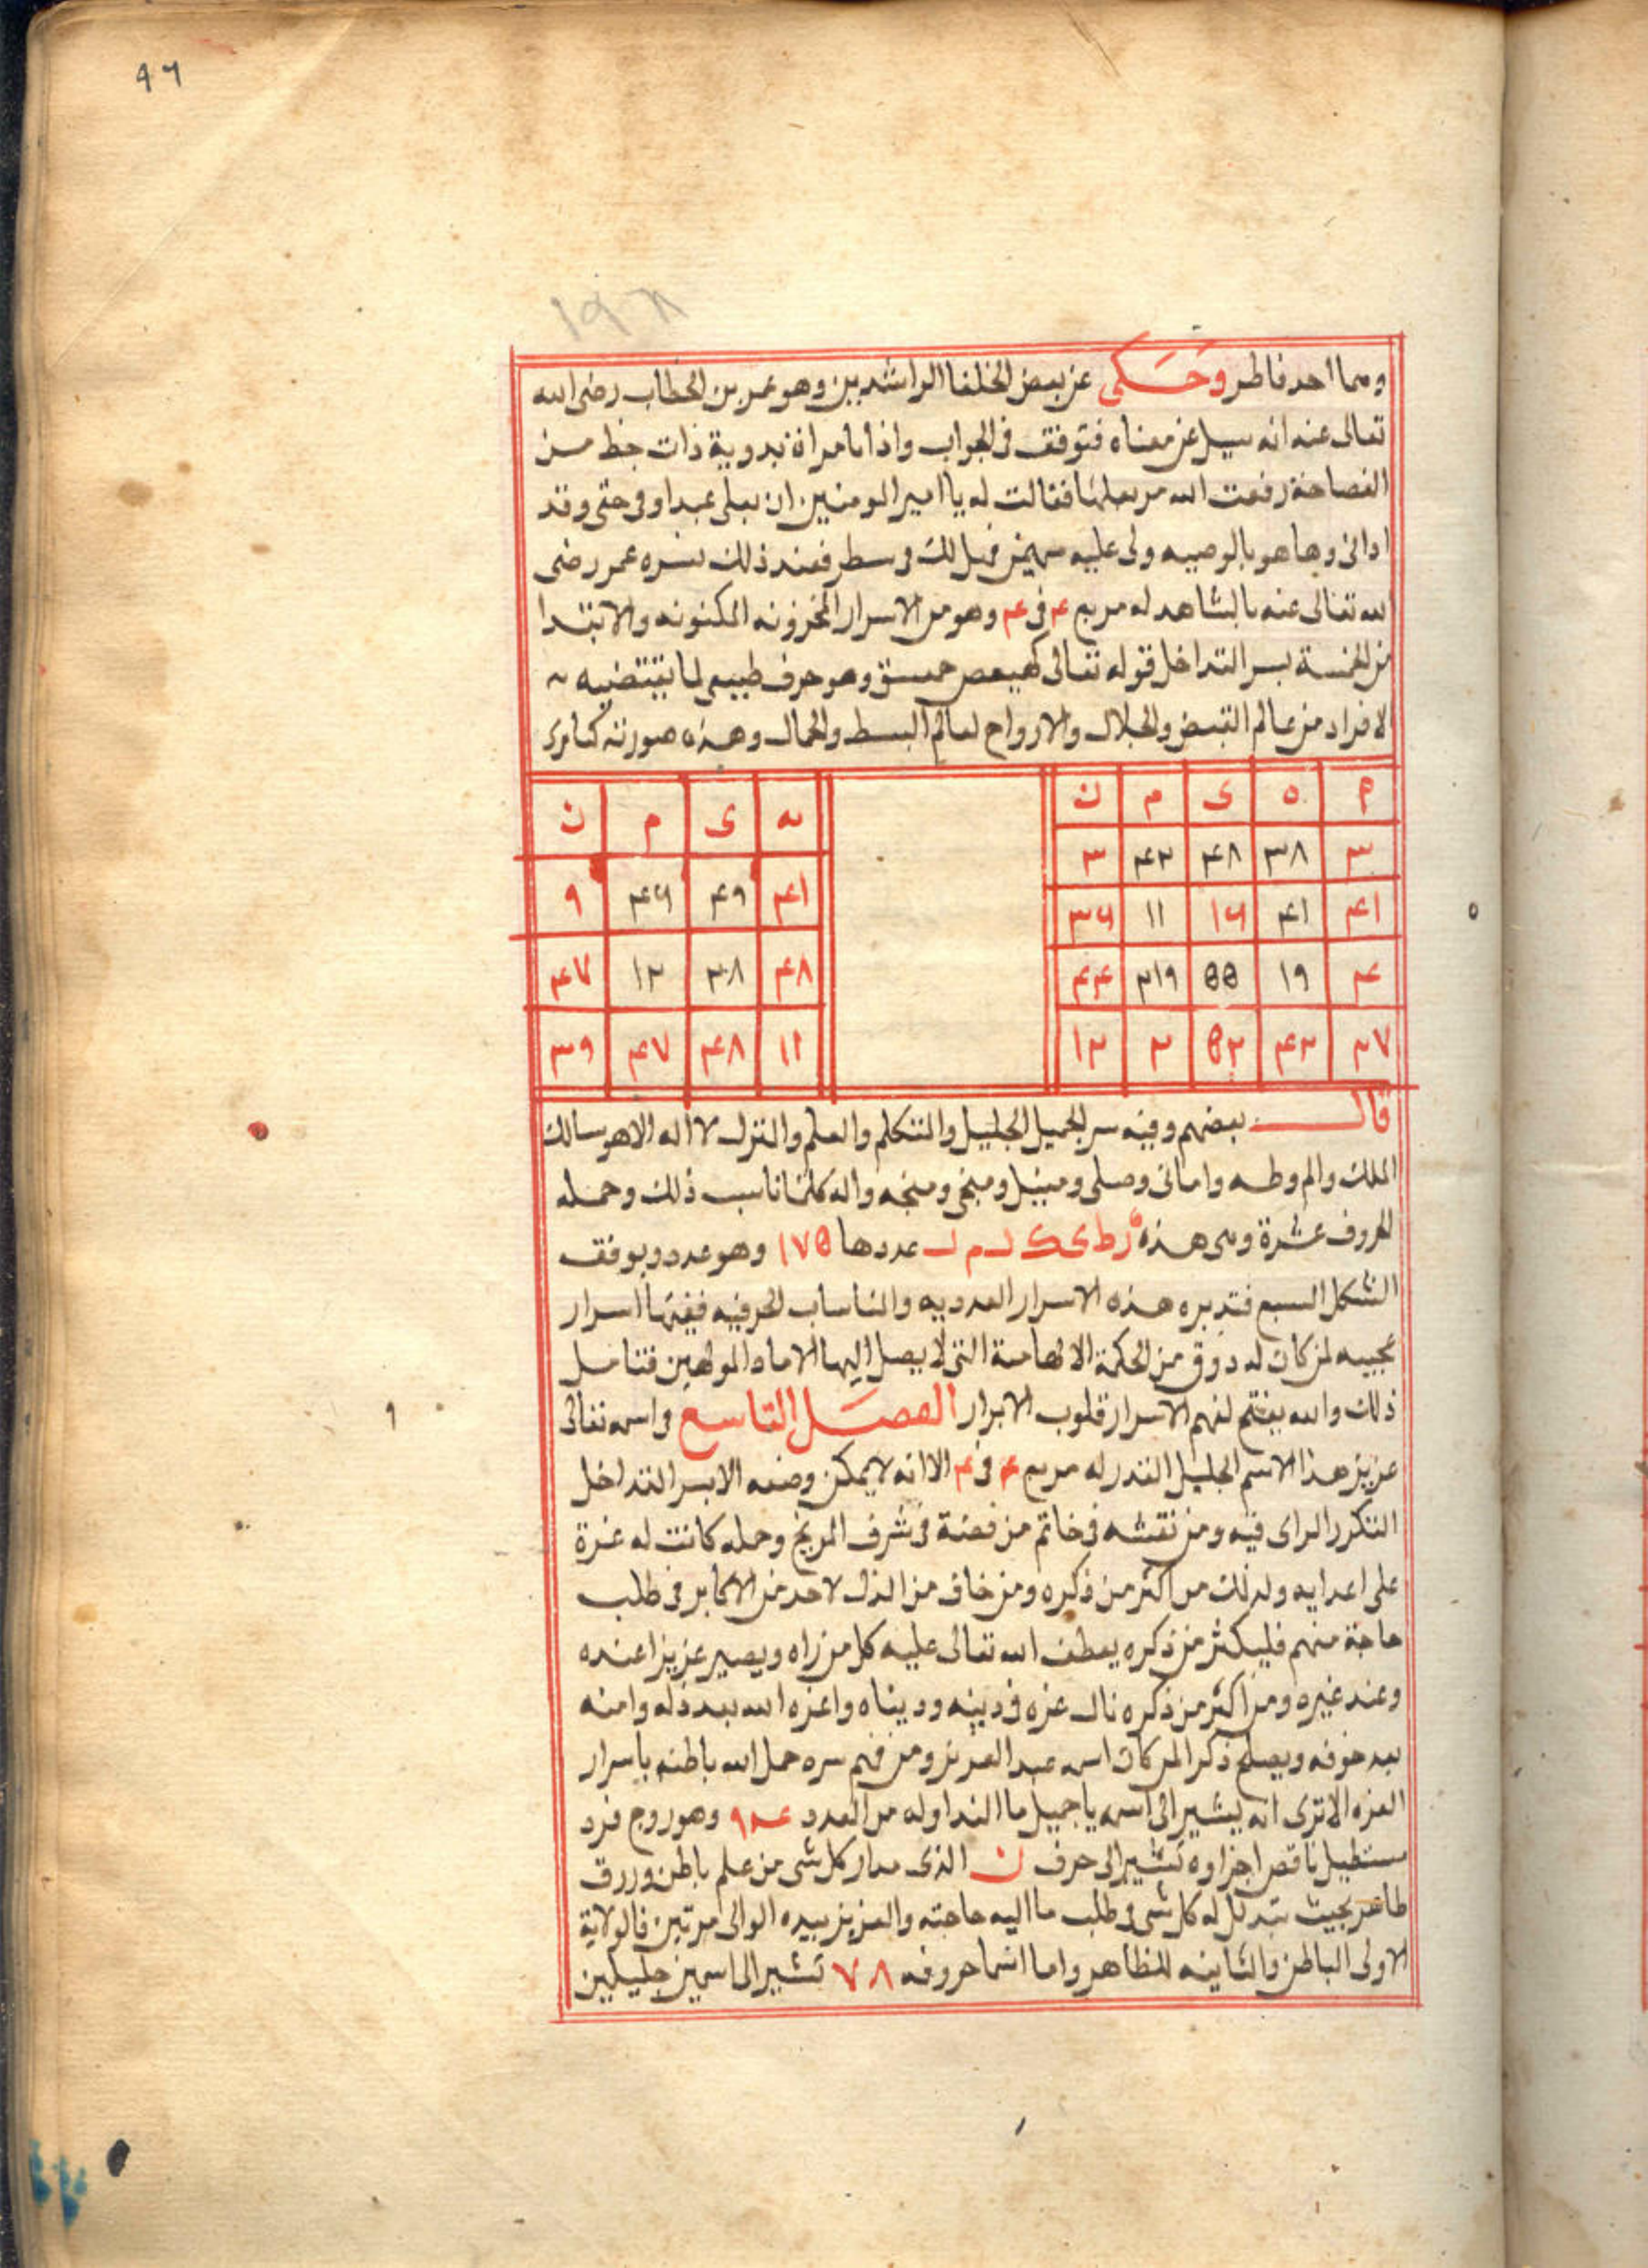 ٩٦
١٩٨
ومما احد فاطر وَحَكى عن بعض الخلفا الراشدين وهو عمر بن الخطاب رضى الله
تعالى عنه انه سيل عن معناه فتوقف فى الجواب واذا بامراة بدوية ذات حظ من
الفصاحة رفعت امر بعلها فقالت له يا امير المومنين ان بعلى عبد اوفى حقى وقد
ادانى وها هو بالوصيه ولى عليه سهمين قبل لك فى سطر فعند ذلك نسره عمر رضى
الله تعالى عنه بالشاهد له مربع ۴ فى ۴ وهو من الاسرار المخزونه المكنونه والابتدا
من الخمسة بسر التداخل قوله تعالى كهيعص حمعسق وهو حرف طبيعى لما يقتضيه
الافراد من عالم القبض والجلال والارواح لعالم البسط والجمال وهذه صورته كما ترى
م ه ى م ن
٣ ٣٨ ۴٨ ۴٣ ٣
۴١ ۴١ ١٦ ١١ ٣٦
۴ ١٩ ٥٥ ٢١٩ ۴۴
٢٧ ۴٣ ٥٢ ٢ ١٢
ه ى م ن
۴١ ۴٩ ۴٦ ٩
۴٨ ٣٨ ١٢ ۴٧
١١ ۴٨ ۴٧ ٣٩
قال بعضهم وفيه سر الجميل الجليل والمتكلم والعلم والتنزل لا اله الا هو سالك
الملك والم وطه وامانى وصلى ومنيل ومنجى ومنجه واله كلها ناسب ذلك وجمله
الحروف عشرة وهى هذه ز ط ى ك ل م ل عددها ١٧٥ وهو عدد وبوفق
الشكل السبع فتدبره هذه الاسرار العدديه والناساب الحرفيه ففيها اسرار
عجيبه لمن كان له ذوق من الحكمة الالهامية التى لا يصل اليها الا ماد المولهين فتامل
ذلك والله يفتح لفهم الاسرار قلوب الابرار الفصل التاسع فى اسمه تعالى
عزيز هذا الاسم الجليل القدر له مربع ۴ فى ۴ الا انه لا يمكن وضعه الا بسر التداخل
التكرر الراى فيه ومن نقشه فى خاتم من فضة فى شرف المريخ وحمله كانت له عزة
على اعدايه ولدلك من اكثر من ذكره ومن خاف من الذل لاحد من الاكابر فى طلب
حاجة منهم فليكثر من ذكره يعطف الله تعالى عليه كل من راه ويصير عزيزا عنده
وعند غيره ومن اكثر من ذكره نال عزه فى دينه ودنياه واعزه الله بعد ذله وامنه
بعد خوفه ويصلح ذكرا لمن كان اسمه عبد العزيز ومن فهم سره حمل الله باطنه باسرار
العزه الا ترى انه يشير الى اسمه يا جميل ما الندا وله من العدد ٩۴ وهو زوج فرد
مستطيل ناقص اجزاوه تشير الى حرف ن الذى مدار كل شى من علم باطن ورزق
طاهر بحيث يتدلل له كل شى وطلب ما اليه حاجته والعزيز بيده الوالى مرتين فالولاية
الاولى الباطن والثانيه للظاهر واما اسما حروفه ٧٨ تشير الى اسمين جليلين
٥
٩